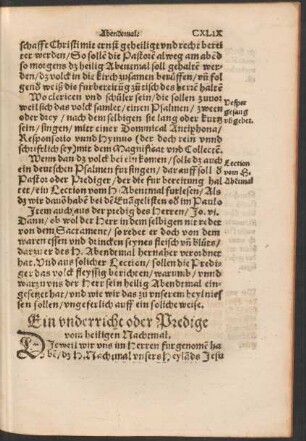 Abendemal. CXLIX
schafft Christi mit ernst geheiliget vnd recht berei
tet werden / So solle die Pastorē alweg am abēd
so morgens dz heilig Abentmal soll gehaltē wer
den / dz volck in die kirch zusamen berüffen / vn̄ fol
gends weiß die furbereitūg zu tisch des herrē haltē
Wo clericen vnd schüler sein / die sollen zuuor
weil sich das volck samlet / einen Psalmen / zween
oder drey / nach dem selbigen sie lang oder kurtz
sein / singen / mitt einer Dominical Antiphona /
Responsorio vnnd Hymno (der doch rein vnnd
schriftlich sey) mit dem Magnificat vnd Collectē.
Vesper
gesang
vn̄gehet.
Wenn dan dz volck bei ein komen / solle dz auch
ein deutschen Psalmen fursingen / darauff soll d
Pastor oder Prediger / der die fur bereitung hal
tet / ein Lection vom H. Abentmal furlesen / Als
dz wir dauō habē bei dē Euāgelisten oð im Paulo
Lection
vom H.
Abētmal
Item auch aus der predig des Herren / Jo. vi.
Dann / ob wol der Herr in dem selbigen nit redet
von dem Sacrament / so redet er doch von dem
waren essen und drincken seynes fleisch vn̄ blůts /
darzu er das H. Abendtmal hernaher verordnet
hat. Vnd aus solicher Lection / sollen die Predi
ger das volck fleyssig berichten / warumb / vnnd
warzu vns der Herr sein heilig Abendtmal ein
gesetzet hat / vnd wie wir das zu vnserem heyl niess
sen sollen / vngeferlich auff ein soliche weise.
Ein vnderricht oder Predige
vom heiligen Nachtmal.
DJeweil wir vns im Herren fur genomē ha
bē / dz H. Nachtmal vnsers Heylāds Jesu